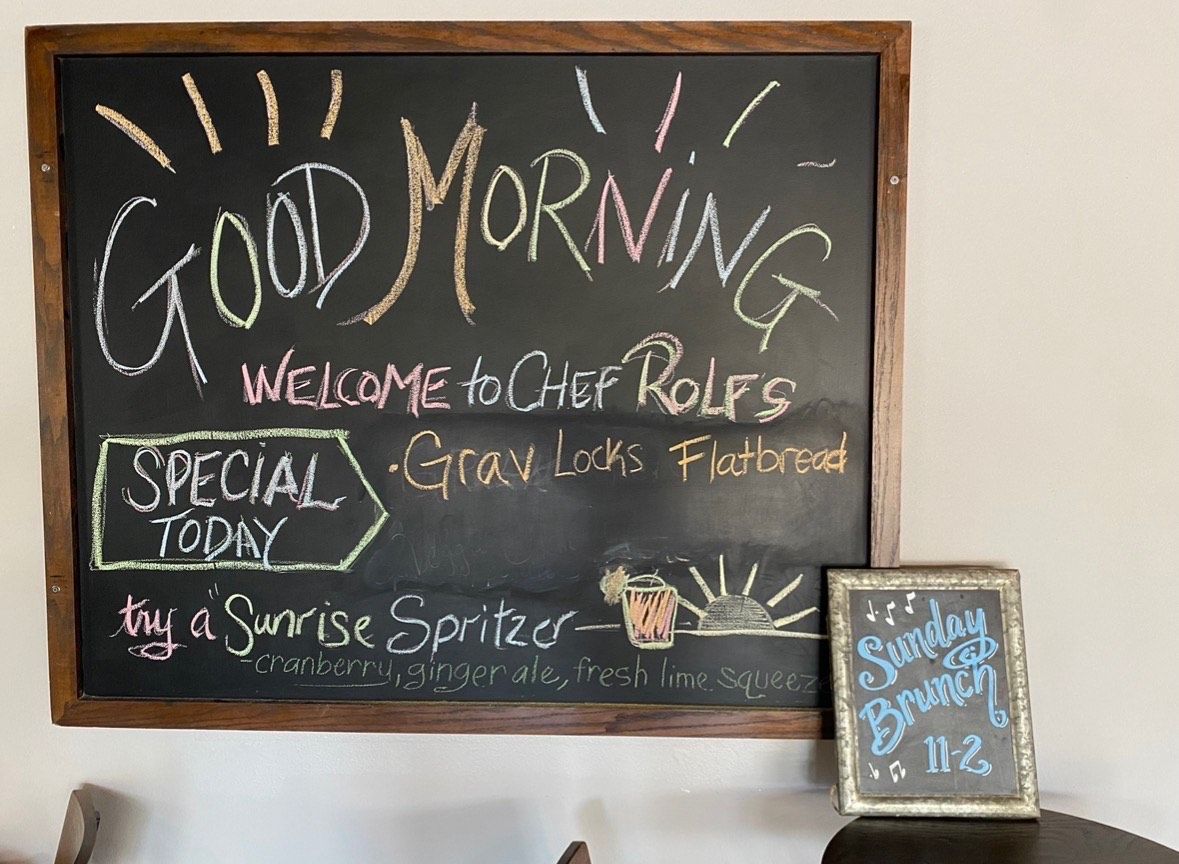 GOOD MORNiNG
WELCOME to CHEF ROLFS
SPECiAL
TODAY
· Grav Locks Flatbread
try a "Sunrise Spritzer
- cranberry, ginger ale, fresh lime squeez
Sunday
Brunch
11-2